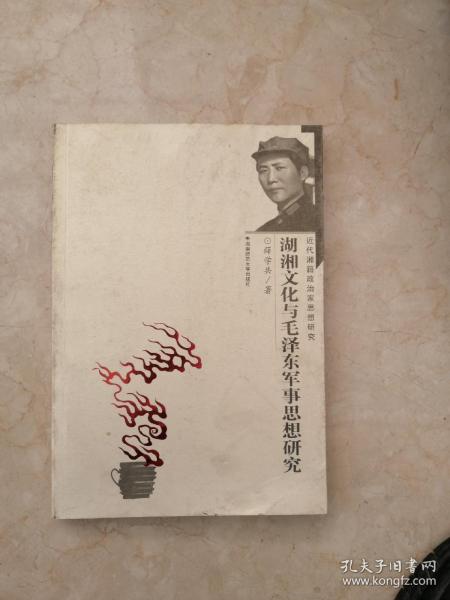 近代湘籍政治家思想研究
湖湘文化与毛泽东军事思想研究
⊙薛学共/著
湖南师范大学出版社
孔夫子旧书网
www.kongfz.com